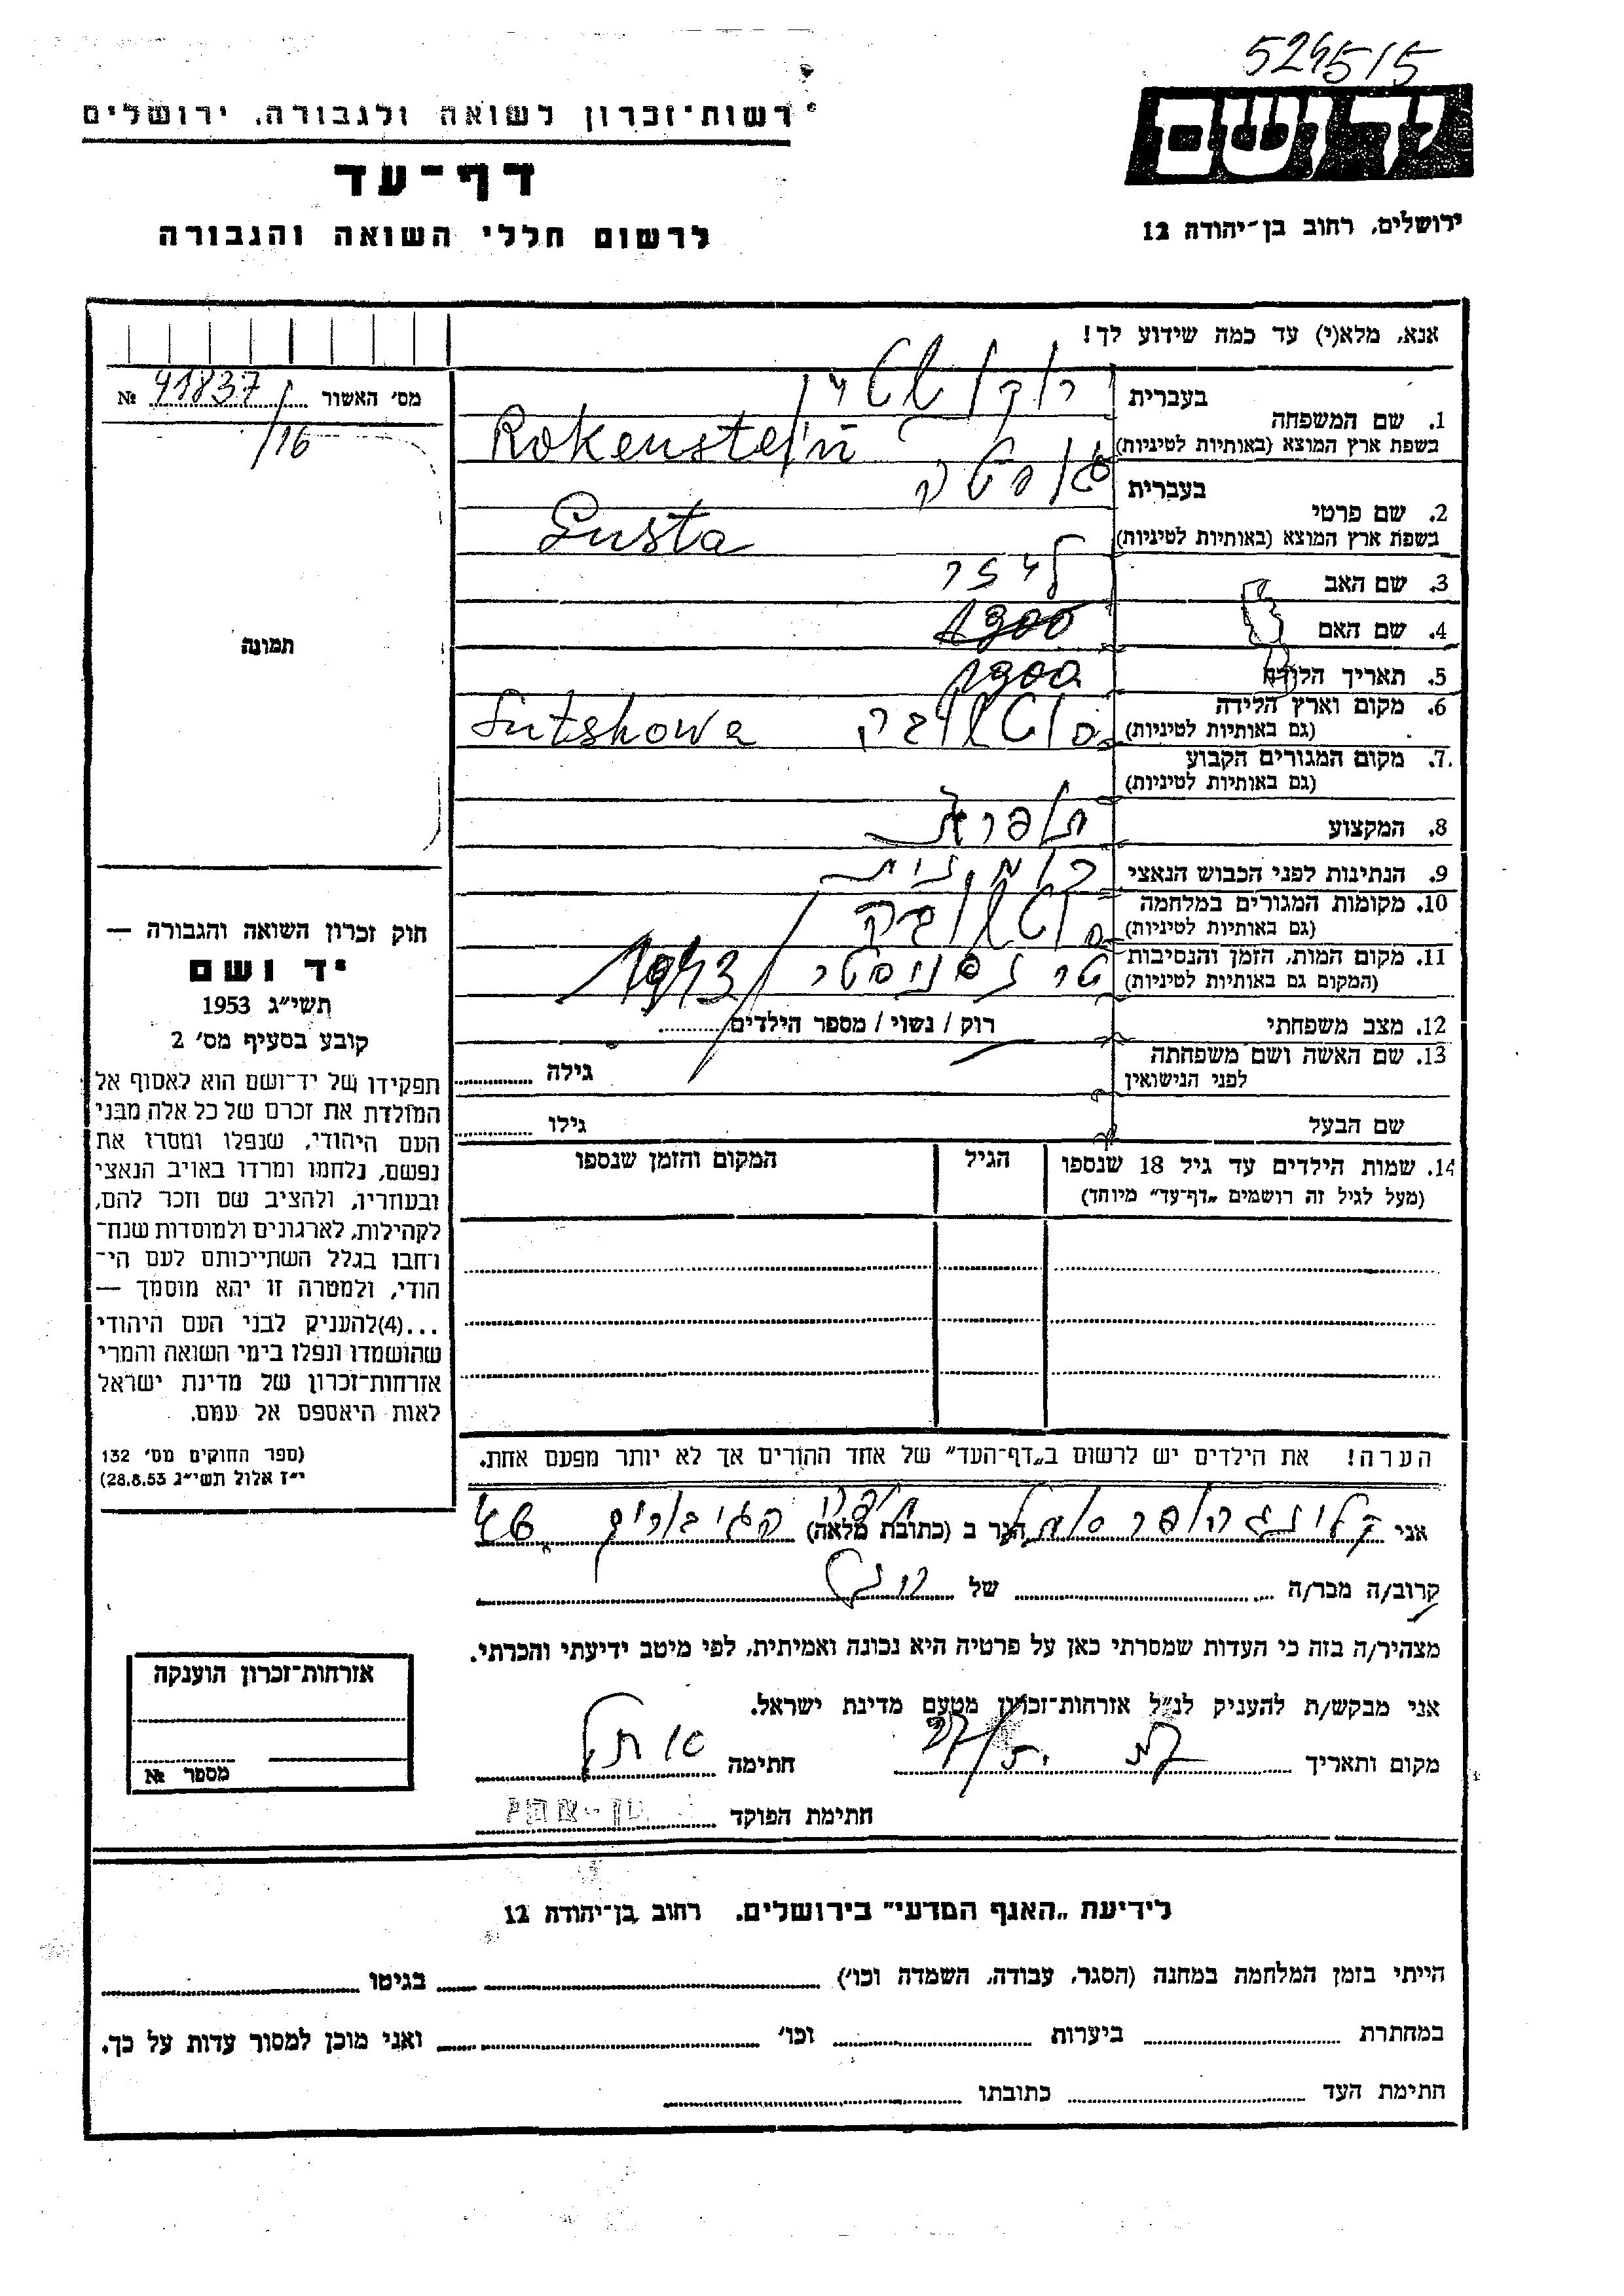 526515
רשות־זכרון לשואה ולגבורה, ירושלים
דף־עד
לרשום חללי השואה והגבורה
יד ושם
ירושלים, רחוב בן־יהודה 12
אנא, מלא(י) עד כמה שידוע לך!
מס׳ האשור № 41837/16
תמונה
1. שם המשפחה
בעברית
בשפת ארץ המוצא (באותיות לטיניות) Rokenstein
2. שם פרטי
בעברית גוסטה
בשפת ארץ המוצא (באותיות לטיניות) Gusta
3. שם האב לייזר
4. שם האם
5. תאריך הלידה 1900
6. מקום וארץ הלידה
(גם באותיות לטיניות) Sutshowa
7. מקום המגורים הקבוע
(גם באותיות לטיניות)
8. המקצוע תופרת
9. הנתינות לפני הכבוש הנאצי רומנית
10. מקומות המגורים במלחמה
(גם באותיות לטיניות)
11. מקום המות, הזמן והנסיבות טרנסניסטר 1943
(המקום גם באותיות לטיניות)
12. מצב משפחתי רוק / נשוי / מספר הילדים
13. שם האשה ושם משפחתה
לפני הנישואין גילה
שם הבעל גילו
14. שמות הילדים עד גיל 18 שנספו
(מעל לגיל זה רושמים „דף־עד״ מיוחד)
הגיל
המקום והזמן שנספו
הערה! את הילדים יש לרשום ב„דף־העד״ של אחד ההורים אך לא יותר מפעם אחת.
חוק זכרון השואה והגבורה —
יד ושם
תשי״ג 1953
קובע בסעיף מס׳ 2
תפקידו של יד־ושם הוא לאסוף אל
המולדת את זכרם של כל אלה מבני
העם היהודי, שנפלו ומסרו את
נפשם, נלחמו ומרדו באויב הנאצי
ובעוזריו, ולהציב שם וזכר להם,
לקהילות, לארגונים ולמוסדות שנח־
רחבו בגלל השתייכותם לעם הי־
הודי, ולמטרה זו יהא מוסמך —
...(4)להעניק לבני העם היהודי
שהושמדו ונפלו בימי השואה והמרי
אזרחות־זכרון של מדינת ישראל
לאות היאספם אל עמם.
(ספר החוקים מס׳ 132
י״ז אלול תשי״ג 28.8.53)
אני קלינגהופר הגר ב (כתובת מלאה) הגיבורים
קרוב/ה מכר/ה של
מצהיר/ה בזה כי העדות שמסרתי כאן על פרטיה היא נכונה ואמיתית, לפי מיטב ידיעתי והכרתי.
אני מבקש/ת להעניק לנ״ל אזרחות־זכרון מטעם מדינת ישראל.
מקום ותאריך חתימה
חתימת הפוקד
אזרחות־זכרון הוענקה
מספר №
לידיעת „האגף המדעי״ בירושלים, רחוב בן־יהודה 12
הייתי בזמן המלחמה במחנה (הסגר, עבודה, השמדה וכו׳) בגיטו
במחתרת ביערות וכו׳ ואני מוכן למסור עדות על כך.
חתימת העד כתובתו